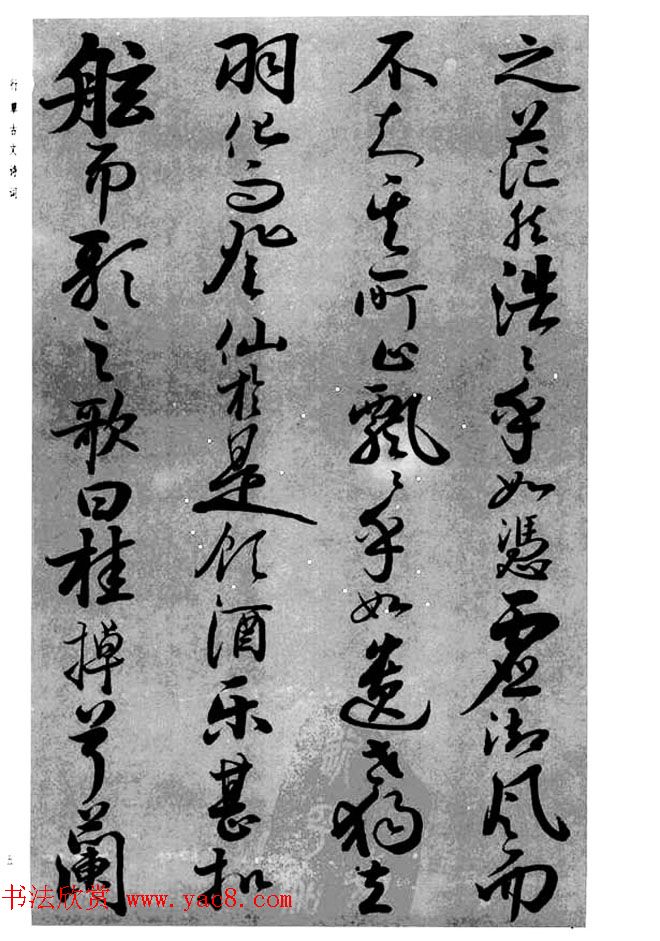 之茫然浩浩乎如憑虛御风而
不知其所止飄飄乎如遗世獨立
羽化而登仙於是飲酒乐甚扣
舷而歌之歌曰桂掉兮蘭
行草古文诗词
书法欣赏 www.yac8.com